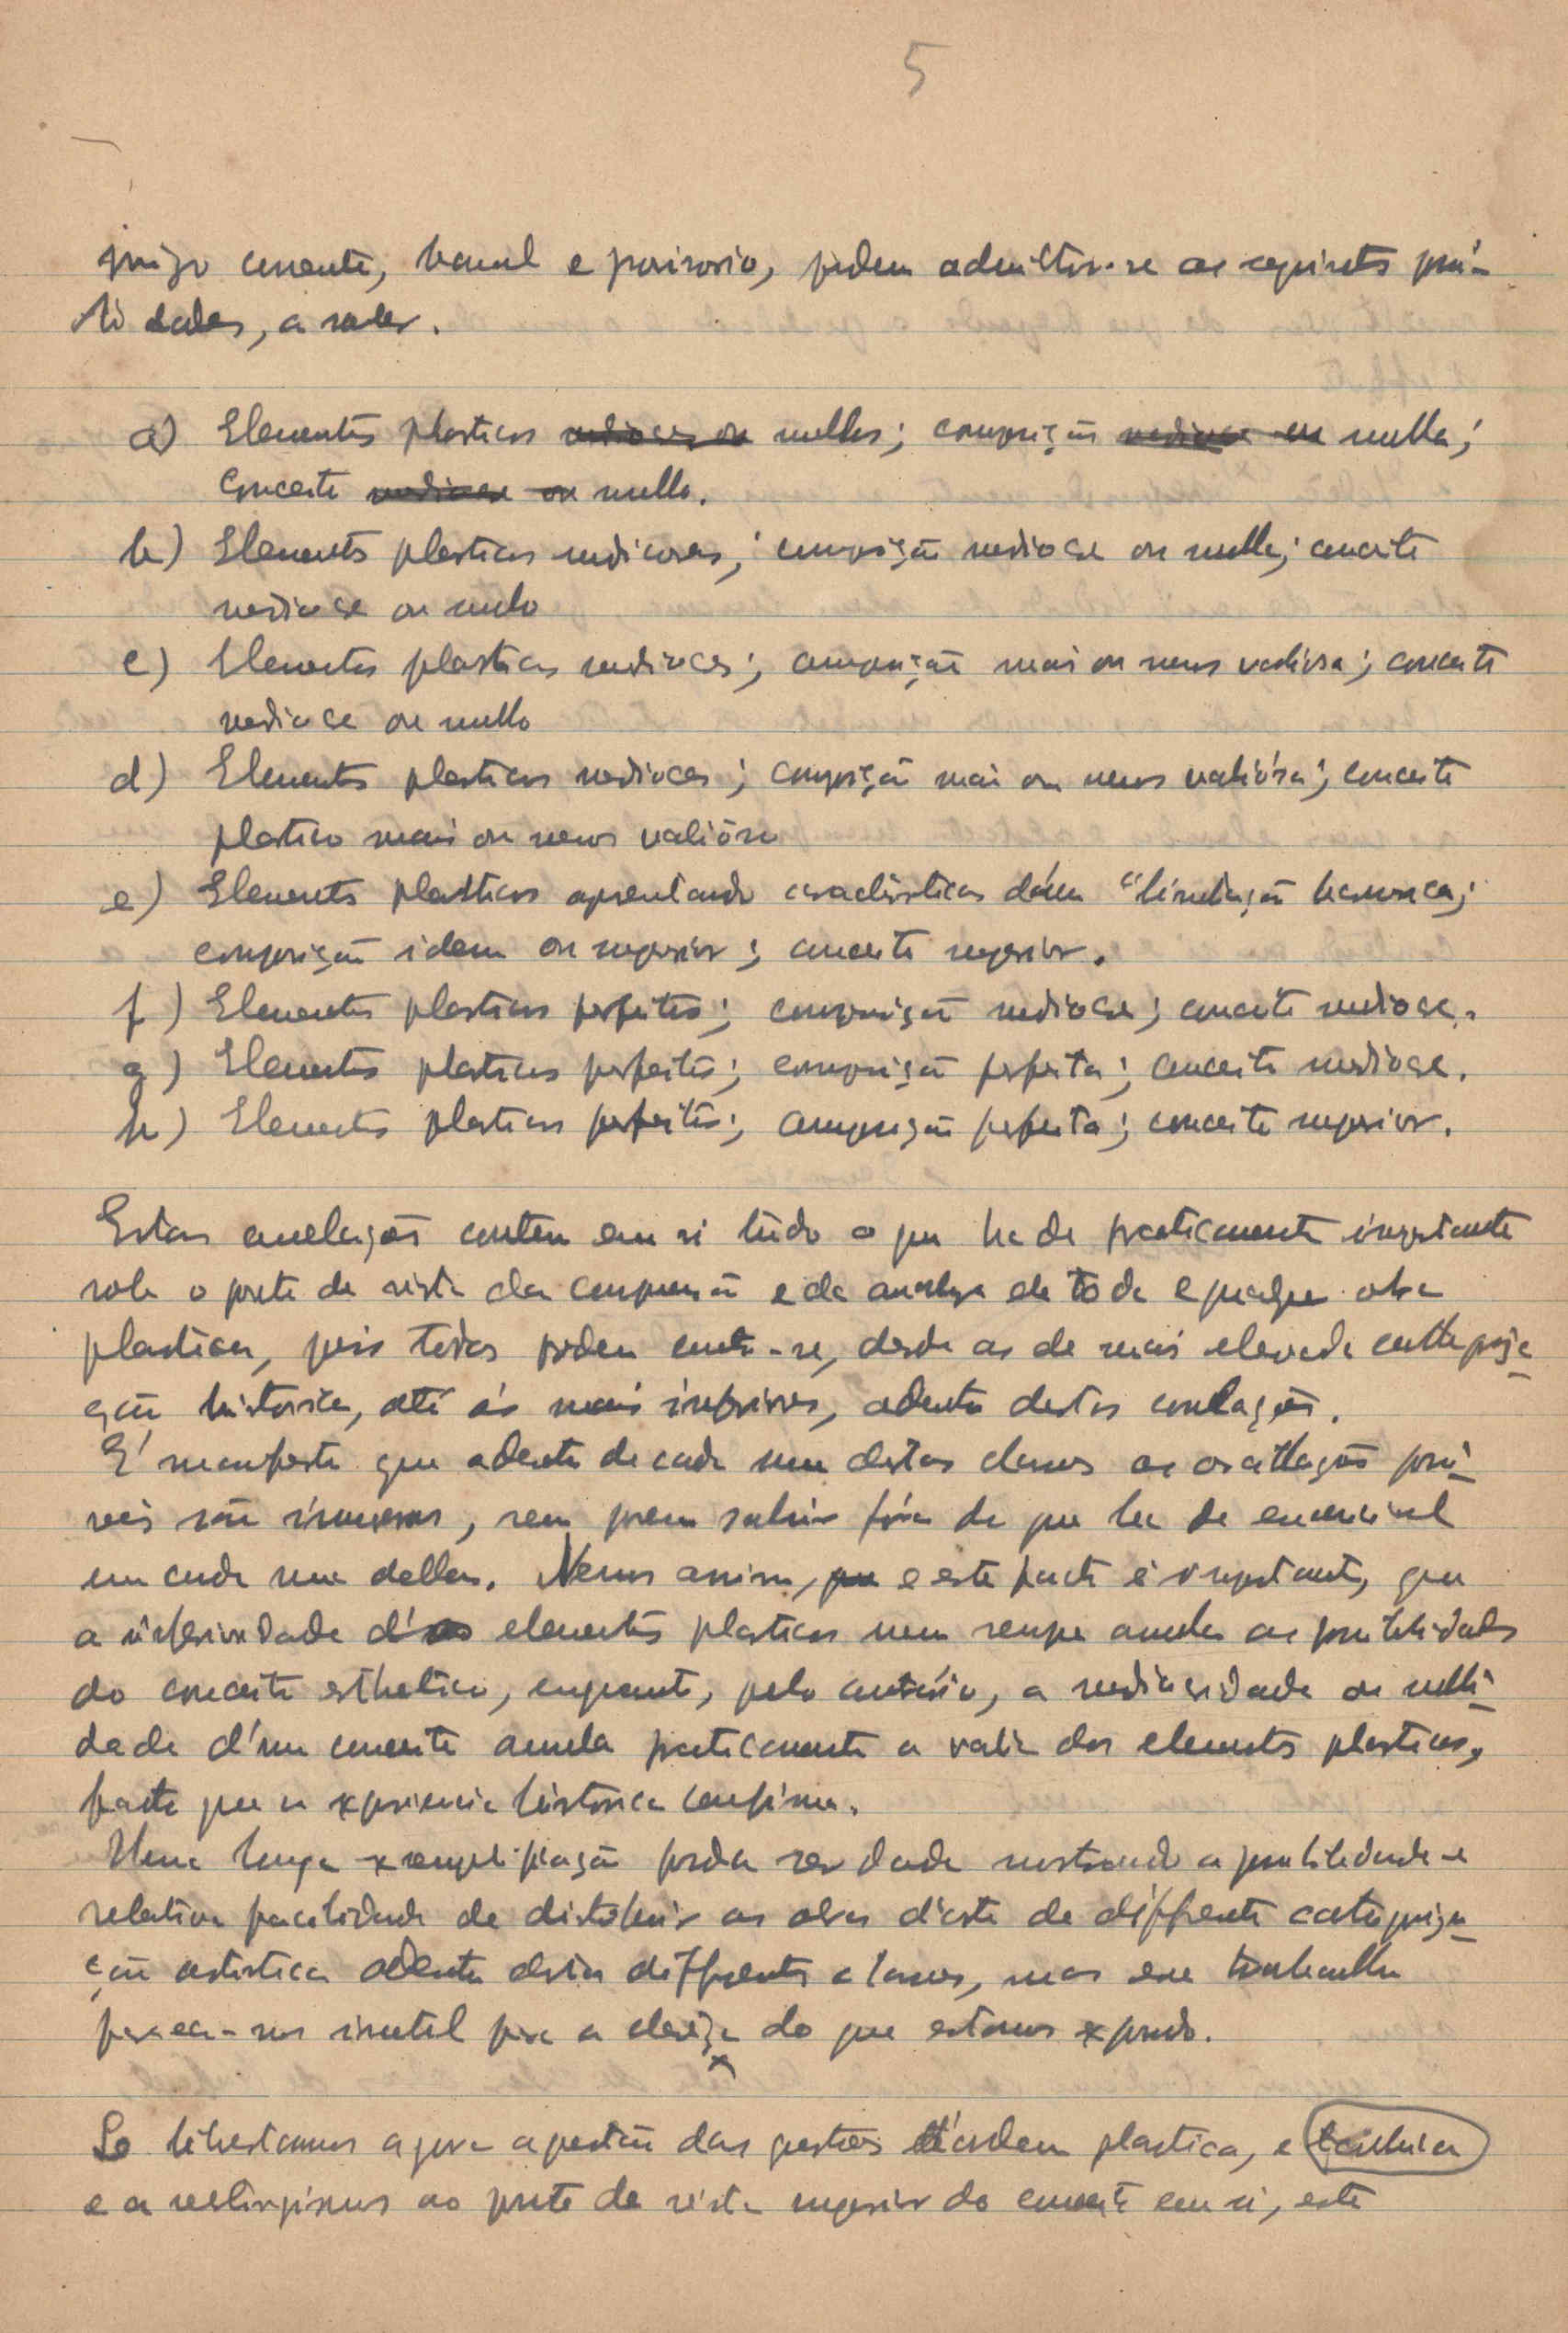 5
juizo corrente, banal e provisorio, podem admittir-se as seguintes possi-
bilidades, a saber.
a) Elementos plasticos mediocres ou nullos; composição mediocre ou nulla;
conceito mediocre ou nullo.
b) Elementos plasticos mediocres; composição mediocre ou nulla; conceito
mediocre ou nulo
c) Elementos plasticos mediocres; composição mais ou menos valiosa; conceito
mediocre ou nullo
d) Elementos plasticos mediocres; composição mais ou menos valiósa; conceito
plastico mais ou menos valiôso
e) Elementos plasticos apresentando caracteristicas d'úma "limitação harmonica;
composição idem ou superior; conceito superior.
f) Elementos plasticos perfeitos; composição mediocre; conceito mediocre.
g) Elementos plasticos perfeitos; composição perfeita; conceito mediocre.
h) Elementos plasticos perfeitos; composição perfeita; conceito superior.
Estas correlações contem em si tudo o que ha de praticamente importante
sob o ponto de vista da compreensão e da analyse de toda e qualquer obra
plastica, pois todas podem conter-se, desde as de mais elevada cathegoriza
ção historica, até ás mais inferiores, adentro destas correlações.
E' manifesto que adentro de cada uma destas classes as oscillações possi-
veis são inumeras, sem porem sahir fóra do que ha de essencial
em cada uma dellas. Vemos assim, que e este facto é importante, que
a inferioridade d'os elementos plasticos nem sempre anula as possibilidades
do conceito esthetico, emquanto, pelo contrário, a mediocridade ou nulli-
dade d'um conceito anula praticamente a valia dos elementos plasticos,
facto que a experiencia historica confirma.
Uma longa exemplificação podia ser dada mostrando a possibilidade e
relativa facilidade de distribuir as obras d'arte de differente categoriza-
ção artistica adentro destas differentes classes, mas esse trabalho
parece-nos inutil para a clareza do que estamos expondo.
Se libertarmos agora a questão das questões d'ordem plastica, e technica
e a restringirmos ao ponto de vista superior do conceito em si, este